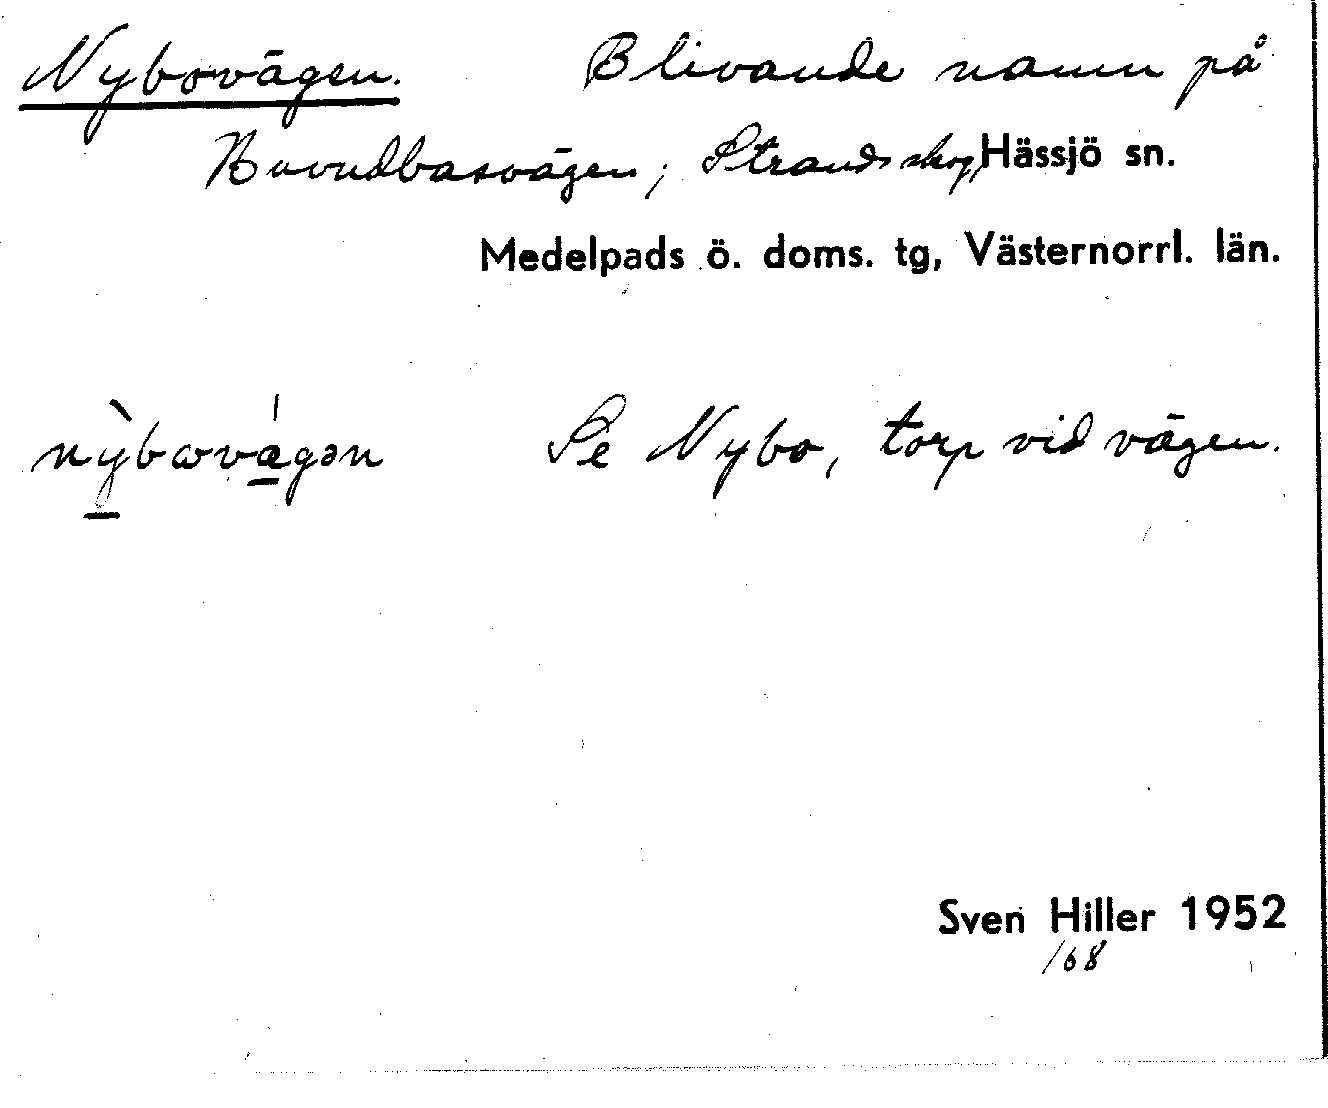 Nybovägen. Blivande namn på
Huvudbasvägen; Strandskog, Hässjö sn.
Medelpads ö. doms. tg, Västernorrl. län.
nỳbωvá̱gən Se Nybo, torp vid vägen.
Sven Hiller 1952
168